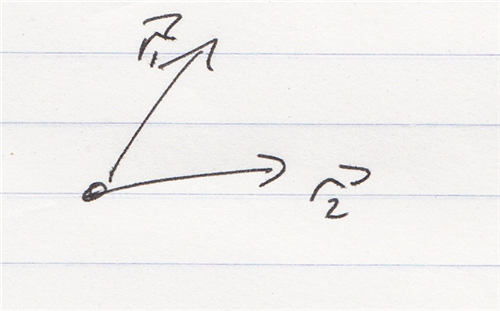 r⃗₁
r⃗₂